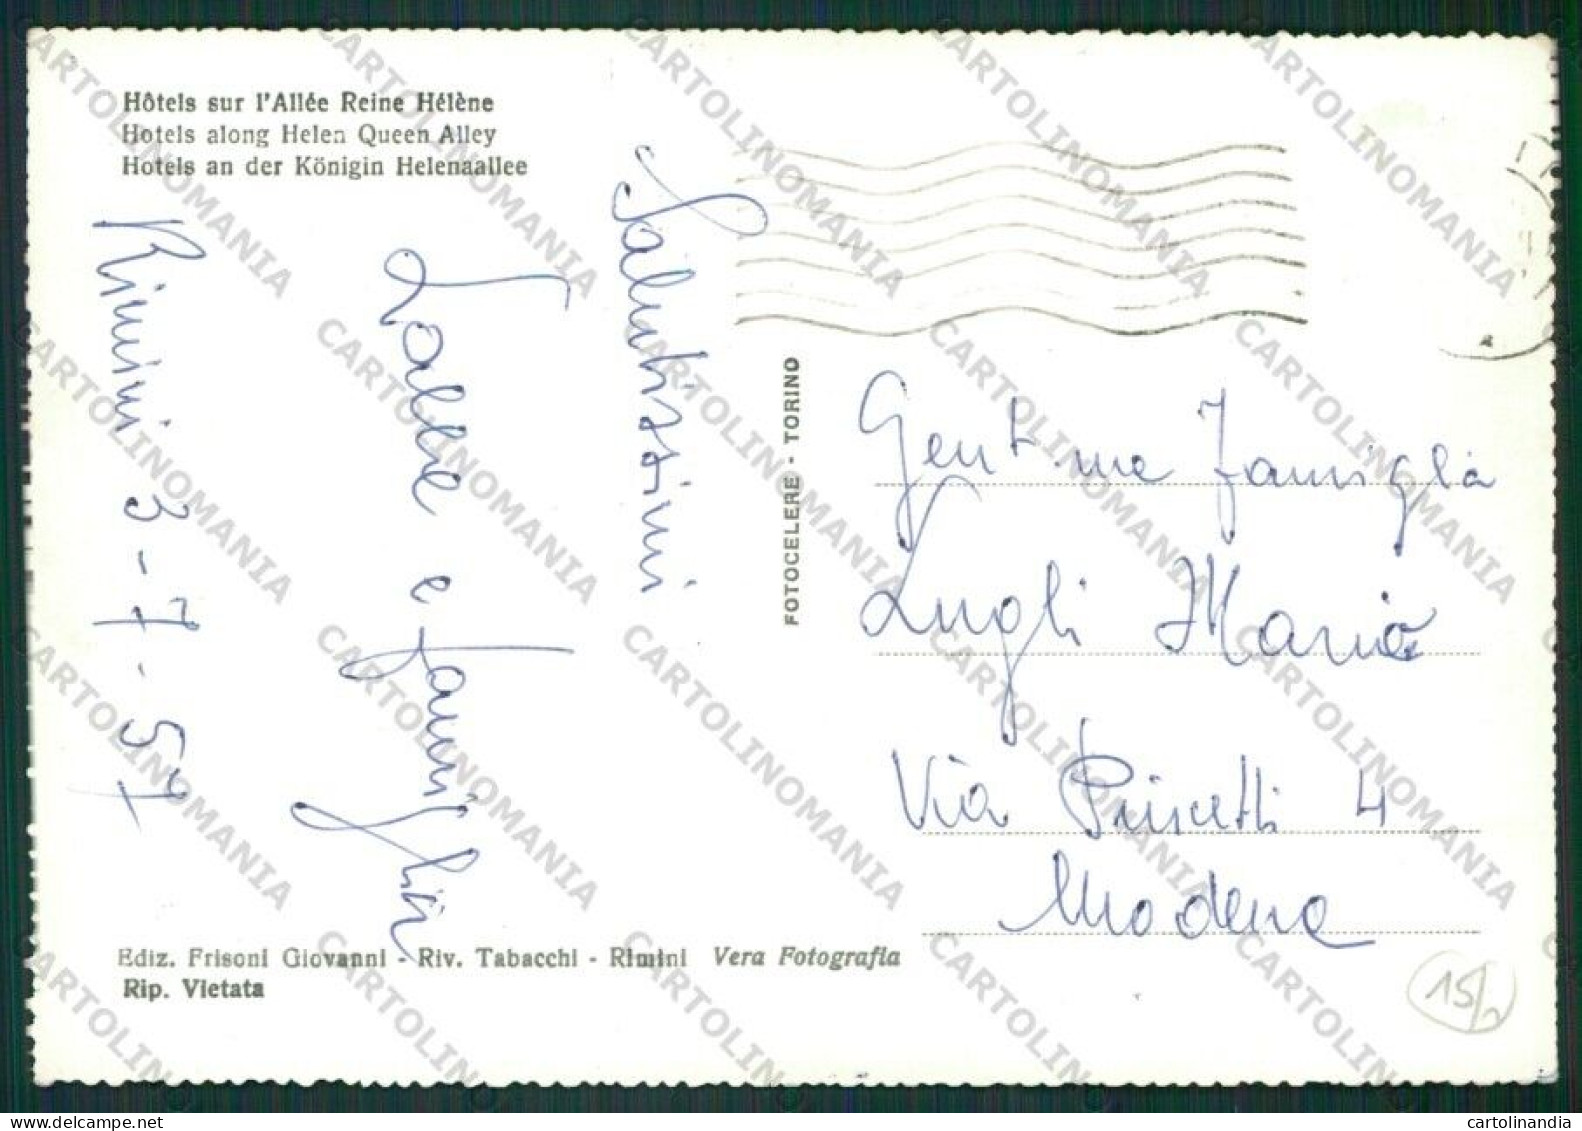 Hôtels sur l'Allée Reine Hélène
Hotels along Helen Queen Alley
Hotels an der Königin Helenaallee
Rimini 3-7-57
e famiglia
Salutissimi
FOTOCELERE - TORINO
Gent.me Famiglia
Lugli Maria
Via 4
Modena
Ediz. Frisoni Giovanni - Riv. Tabacchi - Rimini Vera Fotografia
Rip. Vietata
15/
CARTOLINOMANIA
cartolinandia